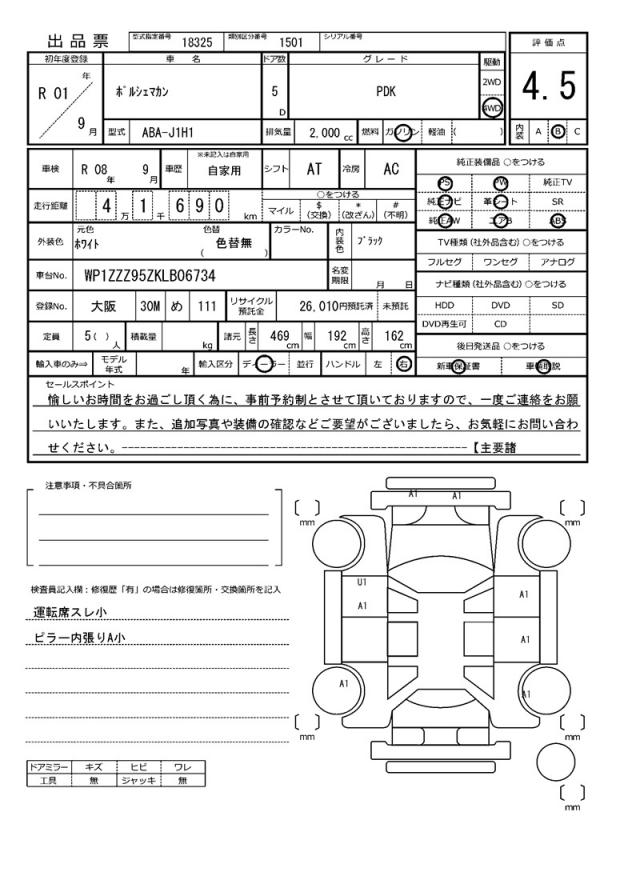 出品票 型式指定番号 18325 類別区分番号 1501 シリアル番号
評価点
4.5
内装 A B C
初年度登録 車名 ドア数 グレード 駆動
R 01 年 9 月 ﾎﾟﾙｼｪﾏｶﾝ 5 D PDK 2WD 4WD
型式 ABA-J1H1 排気量 2,000 cc 燃料 ガソリン 軽油 ( )
車検 R 08 年 9 月 車歴 ※未記入は自家用 自家用 シフト AT 冷房 AC
走行距離 4 万 1 千 6 9 0 km
○をつける
マイル $ (交換) * (改ざん) # (不明)
外装色 元色 ﾎﾜｲﾄ 色替 ( 色替無 ) カラーNo. 内装色 ﾌﾞﾗｯｸ
車台No. WP1ZZZ95ZKLB06734 名変期限 月 日
登録No. 大阪 30M め 111 リサイクル預託金 26,010円預託済 未預託
定員 5( ) 人 積載量 kg 諸元 長さ 469 cm 幅 192 cm 高さ 162 cm
輸入車のみ⇒ モデル年式 年 輸入区分 ディーラー 並行 ハンドル 左 右
純正装備品 ○をつける
PS PW 純正TV
純正ナビ 革シート SR
純正AW エアB ABS
TV種類 (社外品含む) ○をつける
フルセグ ワンセグ アナログ
ナビ種類 (社外品含む) ○をつける
HDD DVD SD
DVD再生可 CD
後日発送品 ○をつける
新車保証書 車輌取説
セールスポイント
愉しいお時間をお過ごし頂く為に、事前予約制とさせて頂いておりますので、一度ご連絡をお願
いいたします。また、追加写真や装備の確認などご要望がございましたら、お気軽にお問い合わ
せください。--------------------------------------------------【主要諸
注意事項・不具合箇所
検査員記入欄：修復歴「有」の場合は修復箇所・交換箇所を記入
運転席スレ小
ピラー内張りA小
ドアミラー キズ ヒビ ワレ
工具 無 ジャッキ 無
A1 A1
[ ] mm [ ] mm
U1
A1 A1
A1
A1 A1
[ ] mm [ ] mm
[ ] mm